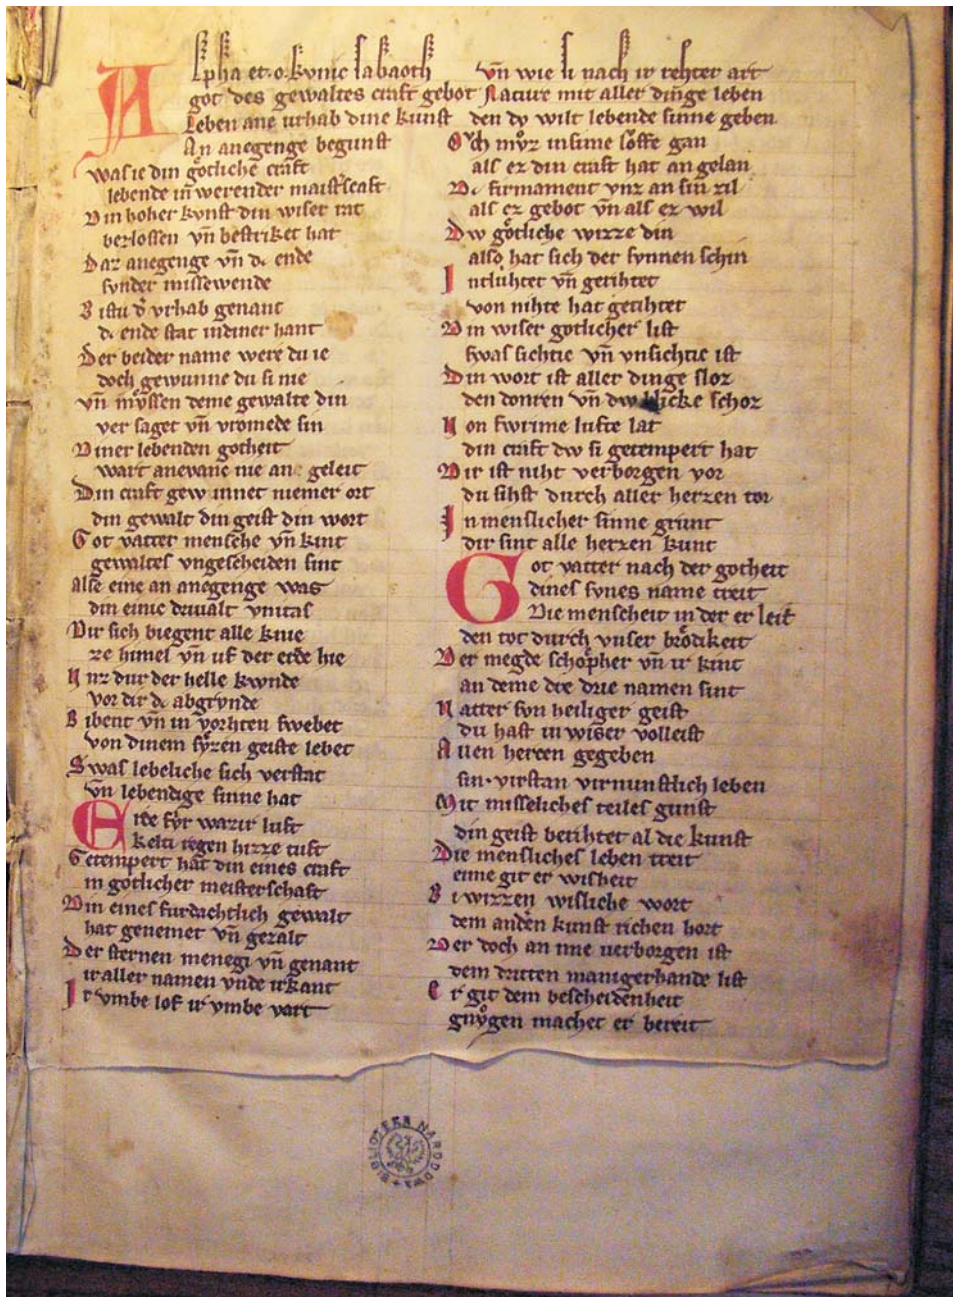 Alpha et o kvnic sabaoth
got des gewaltes craft gebot
Leben ane urhab dine kunst
An anegenge begunst
was ie din gotlichē craft
lebende in werender maistscaft
Din hoher kvnst din wiser rat
beslossen vn̄ bestriket hat
Daz anegenge vn̄ d ende
svnder missewende
Bistu d vrhab genant
d ende stat indiner hant
Der beider name were du ie
doch gewunne du si nie
vn̄ mvͦssen deme gewalte din
ver saget vn̄ vromede sin
Diner lebenden gotheit
wart anevanc nie an geleit
Din craft gewinnet niemer ort
din gewalt din geist din wort
Got vatter mensche vn̄ kint
gewaltes vngescheiden sint
Alse eine an anegenge was
din einic drivalt vnitas
Dir sich biegent alle knie
ze himel vn̄ uf der erde hie
Vnz dur der helle kwnde
vor dir d abgrvnde
Bibent vn̄ in vorhten swebet
von dinem svͤzen geiste lebet
Swas lebeliche sich verstat
vn̄ lebendige sinne hat
Erde fvr wazir luft
kelti regen hizze tuft
Getempert hat din eines craft
in gotlicher meisterschaft
Din eines furdachtlich gewalt
hat genemet vn̄ gezalt
Der sternen menegi vn̄ genant
ir aller namen vnde irkant
Ir vmbe lof ir vmbe vart
vn̄ wie si nach ir rehter art
Nature mit aller dinge leben
den dv wilt lebende sinne geben
Och mvͦz in sime loͮffe gan
als ez din craft hat an gelan
D firmament vnz an sin zil
als ez gebot vn̄ als ez wil
Dw goͤtliche wizze din
also hat sich der svnnen schin
Intluhtet vn̄ gerihtet
von nihte hat getihtet
Din wiser gotlicher list
swas sichtic vn̄ vnsichtic ist
Din wort ist aller dinge sloz
den donren vn̄ dw blicke schoz
Von swime lufte lat
din craft dw si getempert hat
Dir ist niht verborgen vor
du sihst durch aller herzen tor
In menslicher sinne grunt
dir sint alle herzen kunt
Got vatter nach der gotheit
dines svnes name treit
Die menscheit in der er leit
den tot durch vnser broͤdikeit
Der megde schoͤpher vn̄ ir kint
an deme die drie namen sint
Vatter svn heiliger geist
du hast in wiser volleist
Allen herren gegeben
sin virstan virnunstlich leben
Mit misseliches teiles gunst
din geist berihtet al die kunst
Die mensliches leben treit
eime git er wisheit
Bi wizzen wisliche wort
dem andēn kunst richen hort
Der doch an ime verborgen ist
dem dritten manigerhande list
Er git dem bescheidenheit
gnvͦgen machet er bereit
BIBLIOTEKA NARODOWA